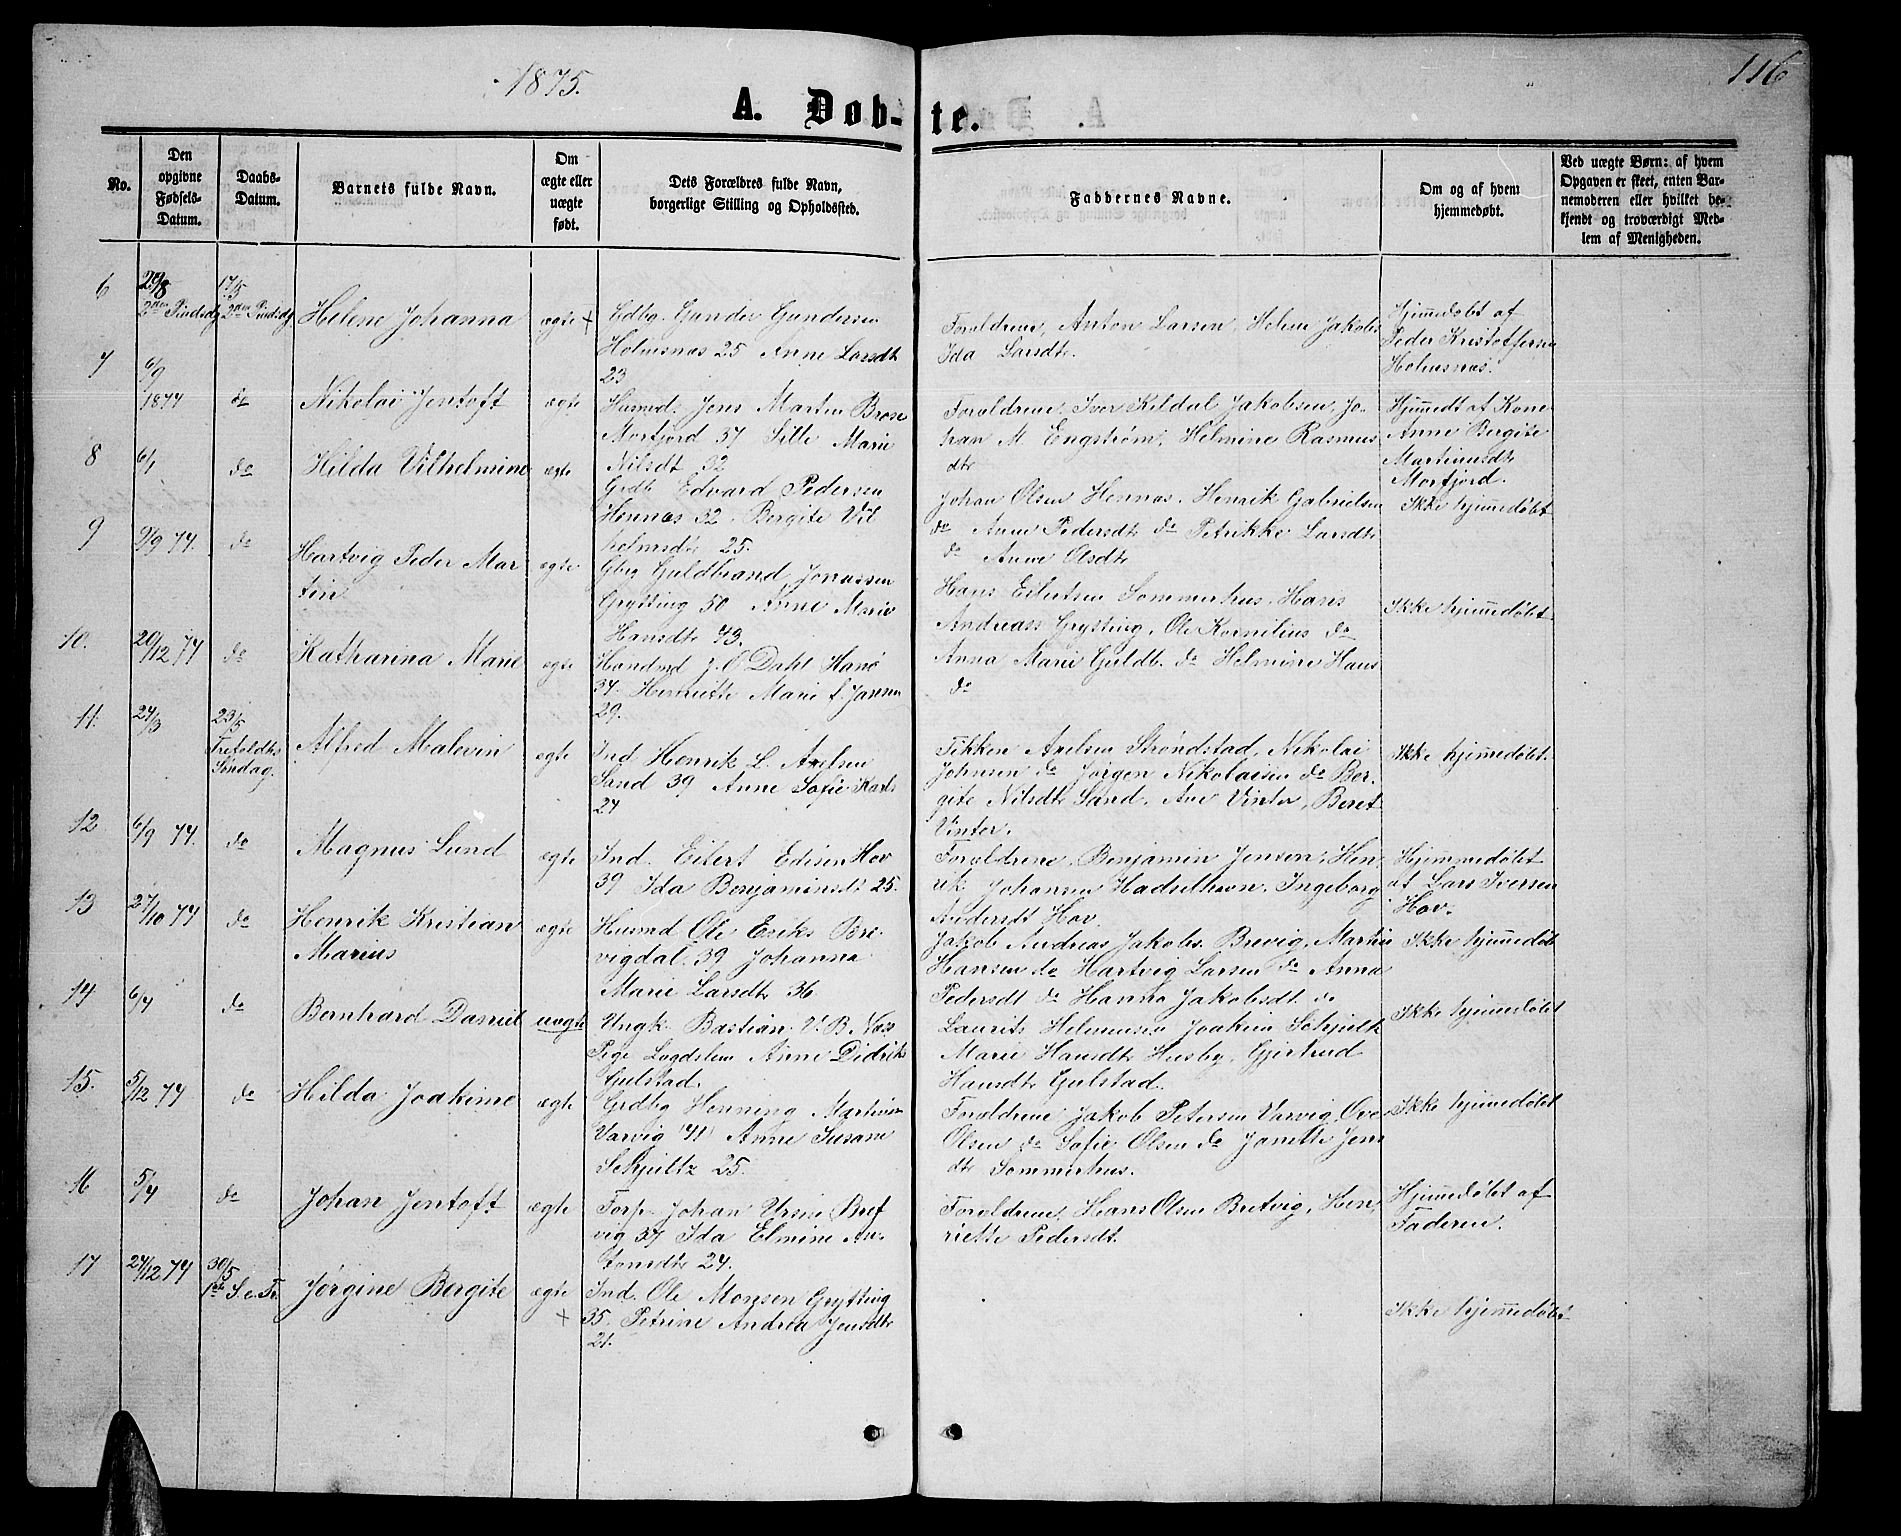 1875.
116
A. Døb-te.
No.
Den opgivne Fødsels-Datum.
Daabs-Datum.
Barnets fulde Navn.
Om ægte eller uægte født.
Dets Forældres fulde Navn, borgerlige Stilling og Opholdssted.
Faddernes Navne.
Om og af hvem hjemmedøbt.
Ved uægte Børn: af hvem Opgaven er skeet, enten Barnemoderen eller hvilket bekjendt og troværdigt Medlem af Menigheden.
6
17/5
2den Pindsdg
Helene Johanna
ægte +
Gdbg. Gunder Gundersen
Holmsnæs 25 Anne Larsdt
23
Forældrene, Anton Larsen, Helene Jakobs
Ida Larsdtr.
Hjemmedøbt af
Peder Kristoffersen
Holmsnæs.
7
6/9
1874
do
Nikolai Jentoft
ægte
Husmd. Jens Martin Brose
Morfjord 37 Sille Marie
Nilsdt 32
Forældrene, Iver Kildal Jakobsen, Jo-
han M. Engstrøm, Helmine Rasmus
dtr
Hjemmedt af Kone
Anne Bergite
Martinusdtr
Morfjord.
8
6/1
do
Hilda Vilhelmine
ægte
Grdb. Edvard Pedersen
Hennæs 32. Bergite Vil
helmsdtr 25.
Johan Olsen Hennæs. Henrik Gabrielsen
do Anne Pedersdtr do Petrikke Larsdtr
do Anne Olsdtr
Ikke hjemmedøbt
9
9/9 74.
do
Hartvig Peder Mar
tin
ægte
Gbrg Guldbrand Jonassen
Grytting 50 Anne Marie
Hansdtr 43.
Hans Eilertsen Sommerhus. Hans
Andreass Grytting, Ole Kornilius do
Anna Marie Guldb. do Helmine Hans
do
Ikke hjemmedøbt
10.
20/12 74
do
Katharina Marie
ægte
Handmd J. O. Dahl Hanø
34. Henriette Marie f. Jansen
29.
11.
24/3
23/5
Trefoldhs
Søndag.
Alfred Malevin
ægte
Ind Henrik L. Axelsen
Sand 39 Anne Sofie Karls
24
Tikken Axelsen Strøndstad, Nikolai
Johnsen do Jørgen Nikolaisen do Ber-
gite Nilsdtr Sand. Ane Vinter, Beret
Vinter.
Ikke hjemmedøbt.
12
6/9 74.
do
Magnus Lund
ægte
Ind. Eilert Edisen Hov
39 Ida Benjaminsdt 25.
Forældrene, Benjamin Jensen, Hen-
rik Johansen Hadselhavn. Ingeborg
Andersdt Hov.
Hjemmedøbt
af Lars Iversen
Hov.
13
27/10 74
do
Henrik Kristian
Marius
ægte
Husmd Ole Eriks Bre
vigdal 39 Johanna
Marie Larsdtr 36.
Jakob Andreas Jakobs. Brevig, Martin
Hansen do Hartvig Larsen do Anna
Pedersdt do Hanna Jakobsdt. do
Ikke hjemmedøbt
14
6/4
do
Bernhard Daniel
uægte
Ungk. Bastian V. B. Næss
Pige Anne Didriks
Gulstad.
Laurits Helmersen Joakim Schjelt
Marie Hansdtr Husby, Gjertrud
Hansdtr Gulstad.
Ikke hjemmedøbt
15.
5/12 74
do
Hilda Joakime
ægte
Grdbg Henning Martinsen
Varvig 41 Anne Susane
Schjeltz 25.
Forældrene Jakob Petersen Varvig, Ove
Olsen do Sofie Olsen do Janette Jens
dtr Sommerhus.
Ikke hjemmedøbt
16
5/4
do
Johan Jentoft
ægte
Forp. Johan Ursin Bref
vig 37 Ida Elmine An-
tonsdtr 24.
Forældrene, Hans Olsen Bretvig, Hen,
riette Pedersdt.
Hjemmedøbt af
Faderen.
17
27/12 74
30/5
1ste S. e. Tr.
Jørgine Bergite
ægte
+
Ind. Ole Monsen Grytting
35. Petrine Andrea Jensdtr
21.
Ikke hjemmedøbt